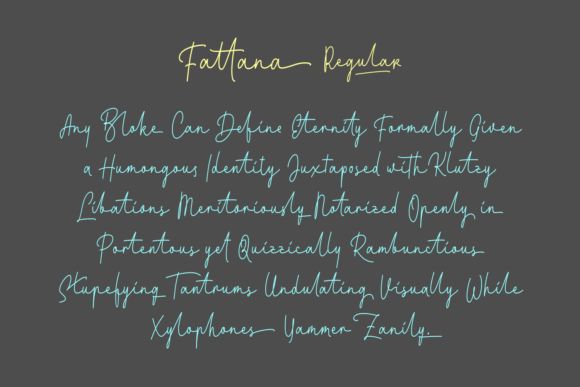 Fattana Regular
Any Bloke Can Define Eternity Formally Given
a Humongous Identity Juxtaposed with Klutzy
Libations Meritoriously Notarized Openly in
Portentous yet Quizzically Rambunctious
Stupefying Tantrums Undulating Visually While
Xylophones Yammer Zanily.